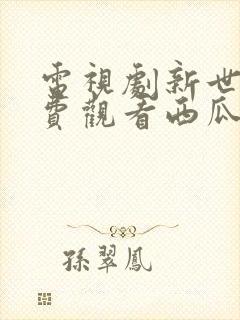 電視劇新世
費觀看西瓜
孫翠鳳